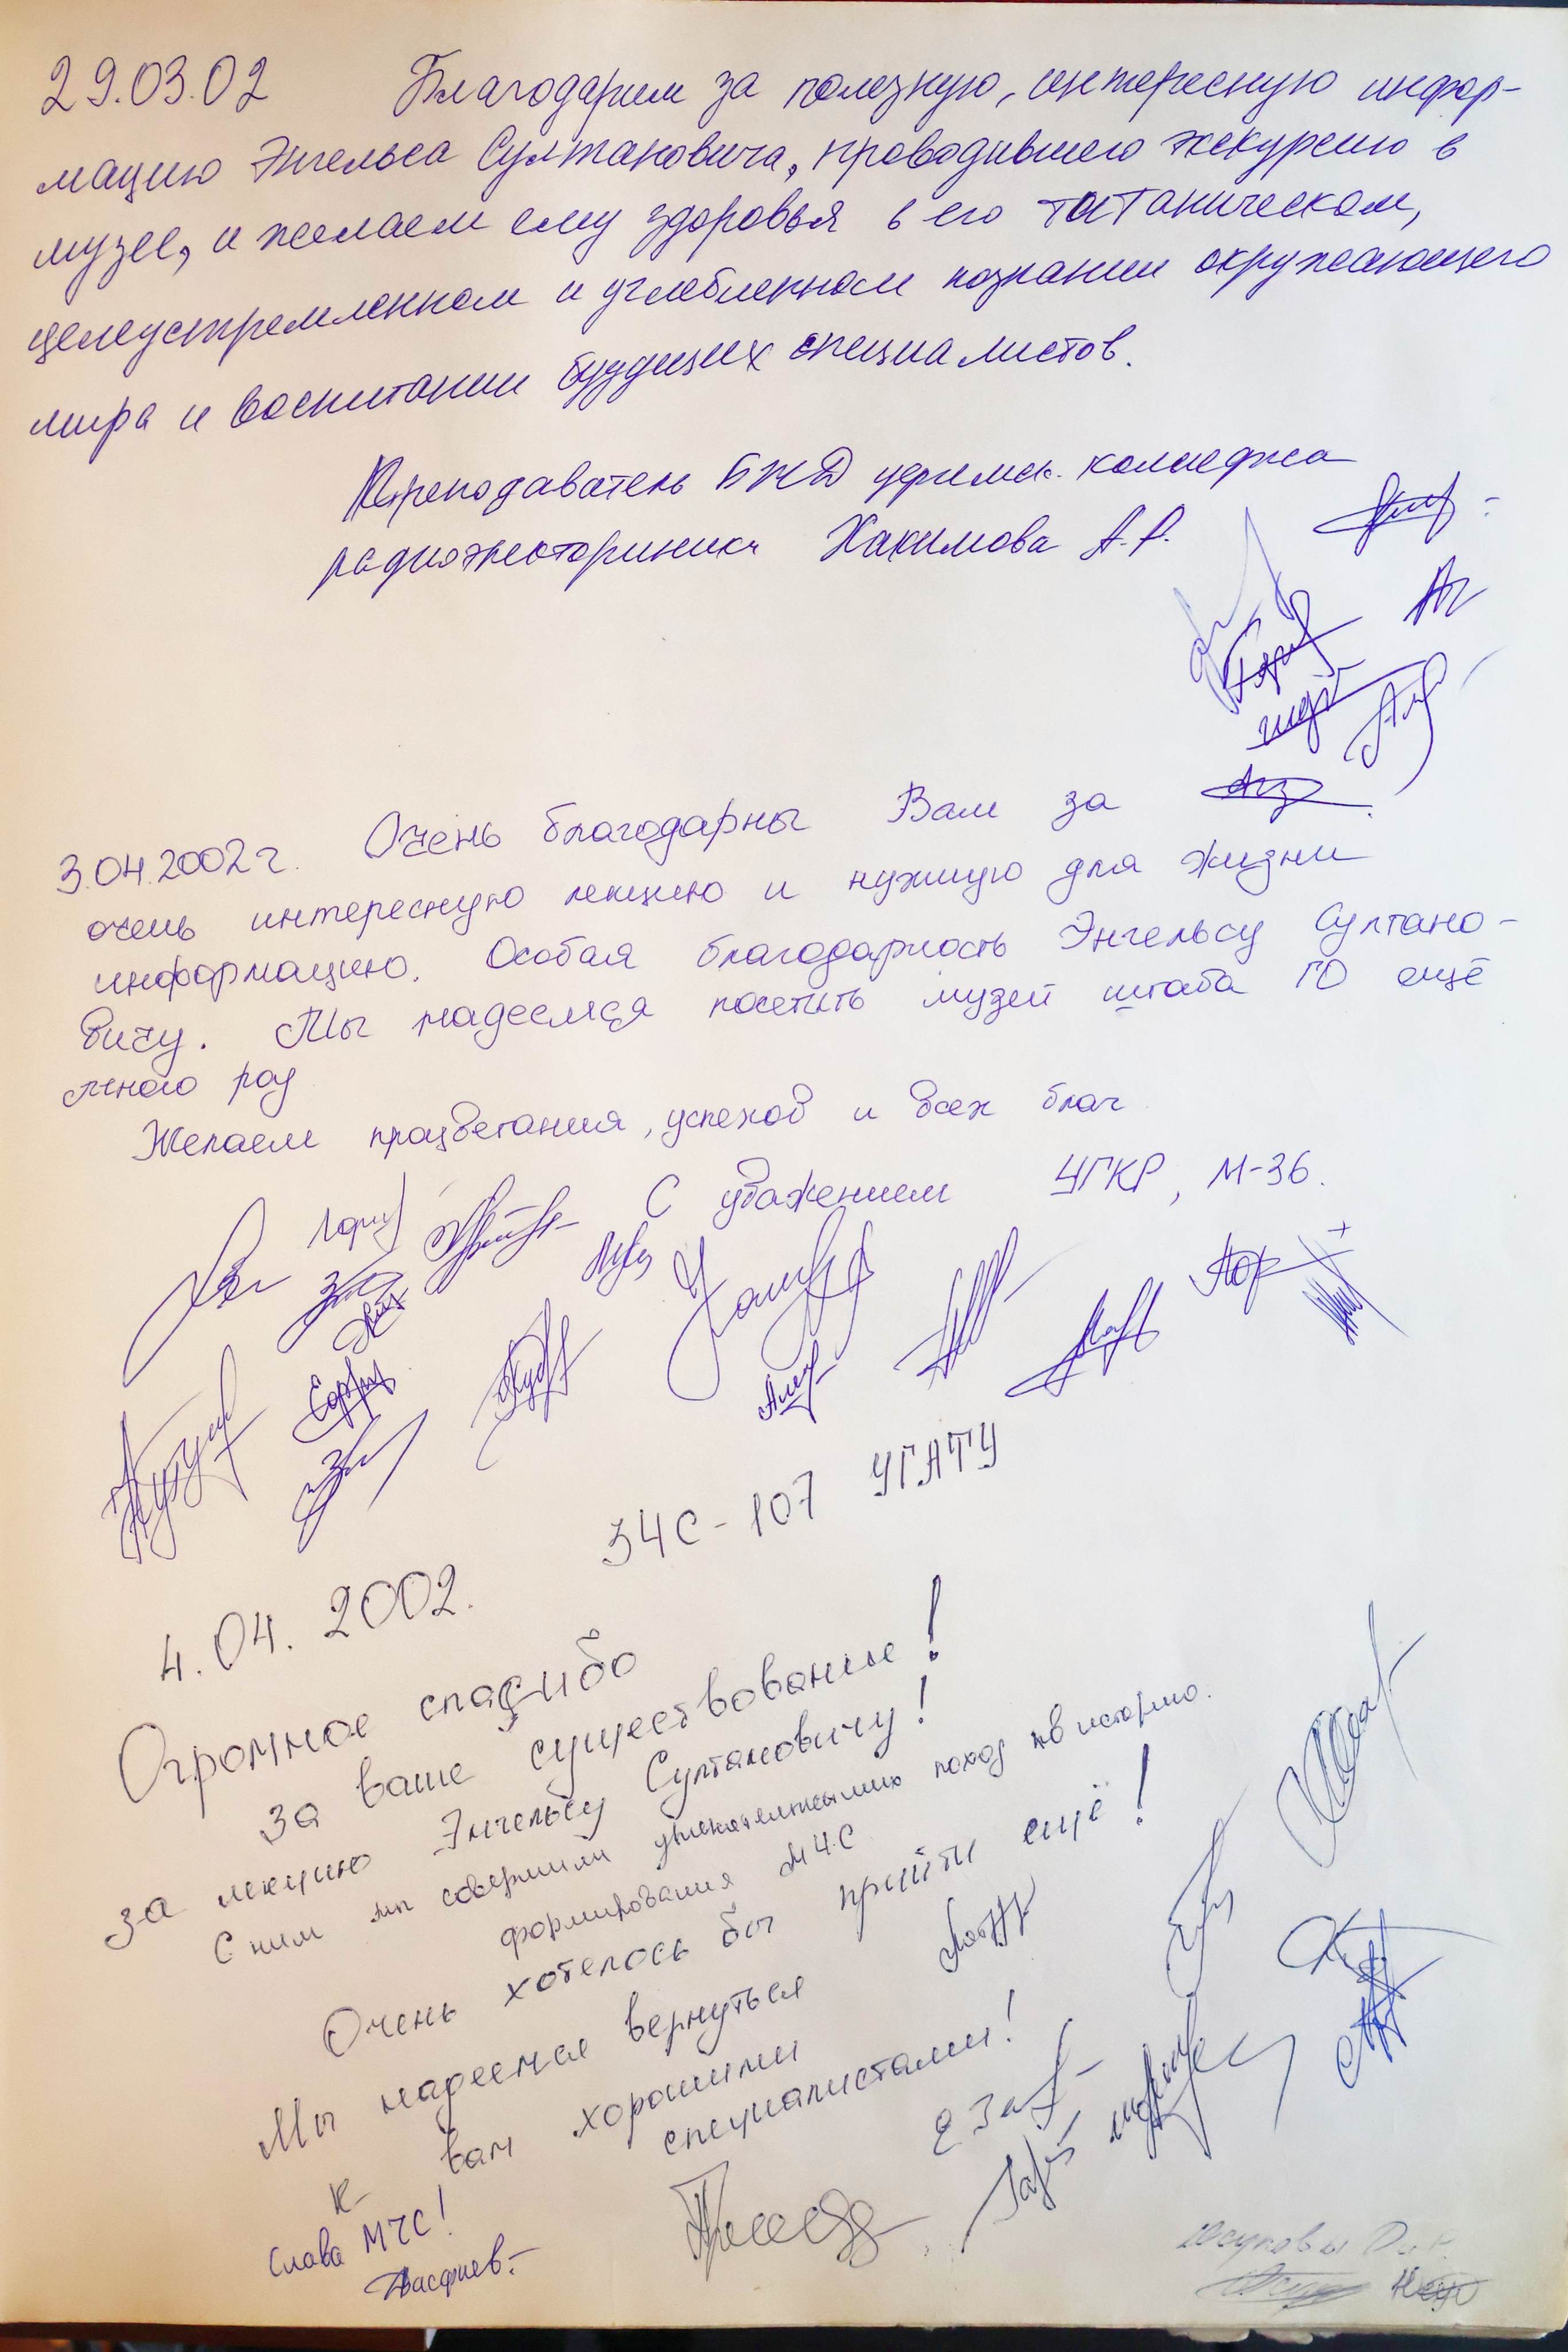 29.03.02 Благодарим за полезную, интересную инфор-
мацию Энгельса Султановича, проводившего экскурсию в
музее, и желаем ему здоровья в его титаническом,
целеустремленном и углебленном познании окружающего
мира и воспитании будущих специалистов.
Преподаватель БЖД уфимск. колледжа
радиоэлектроники Хакимова А.Р.
3.04.2002 г. Очень благодарны Вам за
очень интересную лекцию и нужную для жизни
информацию. Особая благодарность Энгельсу Султано-
вичу. Мы надеемся посетить музей штаба ГО ещё
много раз
Желаем процветания, успехов и всех благ
С уважением УГКР, М-36.
ЗЧС-107 УГАТУ
4.04.2002.
Огромное спасибо
за ваше существование!
за лекцию Энгельсу Султановичу!
С ним мы совершили увлекательный поход в историю
формирования МЧС
Очень хотелось бы прийти ещё!
Мы надеемся вернуться
к вам хорошими
специалистами!
Слава МЧС!